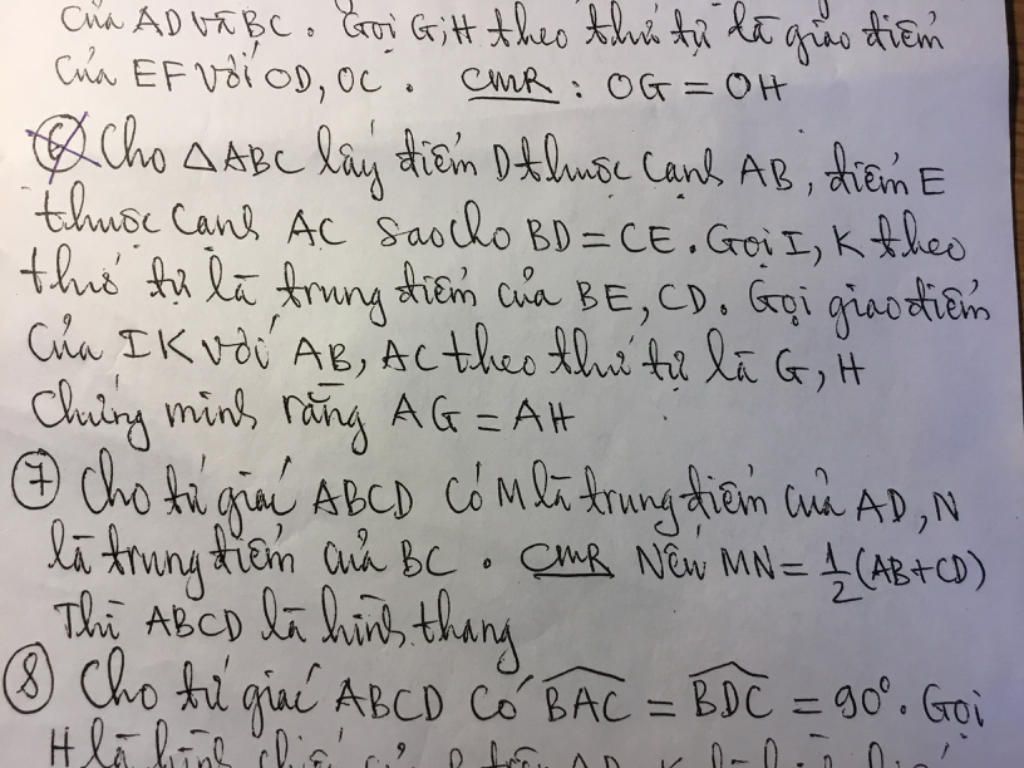 của AD và BC. Gọi G, H theo thứ tự là giao điểm
của EF với OD, OC. CMR: OG = OH
⑥ Cho △ABC lấy điểm D thuộc cạnh AB, điểm E
thuộc cạnh AC sao cho BD = CE. Gọi I, K theo
thứ tự là trung điểm của BE, CD. Gọi giao điểm
của IK với AB, AC theo thứ tự là G, H
Chứng minh rằng AG = AH
⑦ Cho tứ giác ABCD có M là trung điểm của AD, N
là trung điểm của BC. CMR Nếu MN = 1/2 (AB+CD)
Thì ABCD là hình thang
⑧ Cho tứ giác ABCD có BAC = BDC = 90°. Gọi
H là hình chiếu của